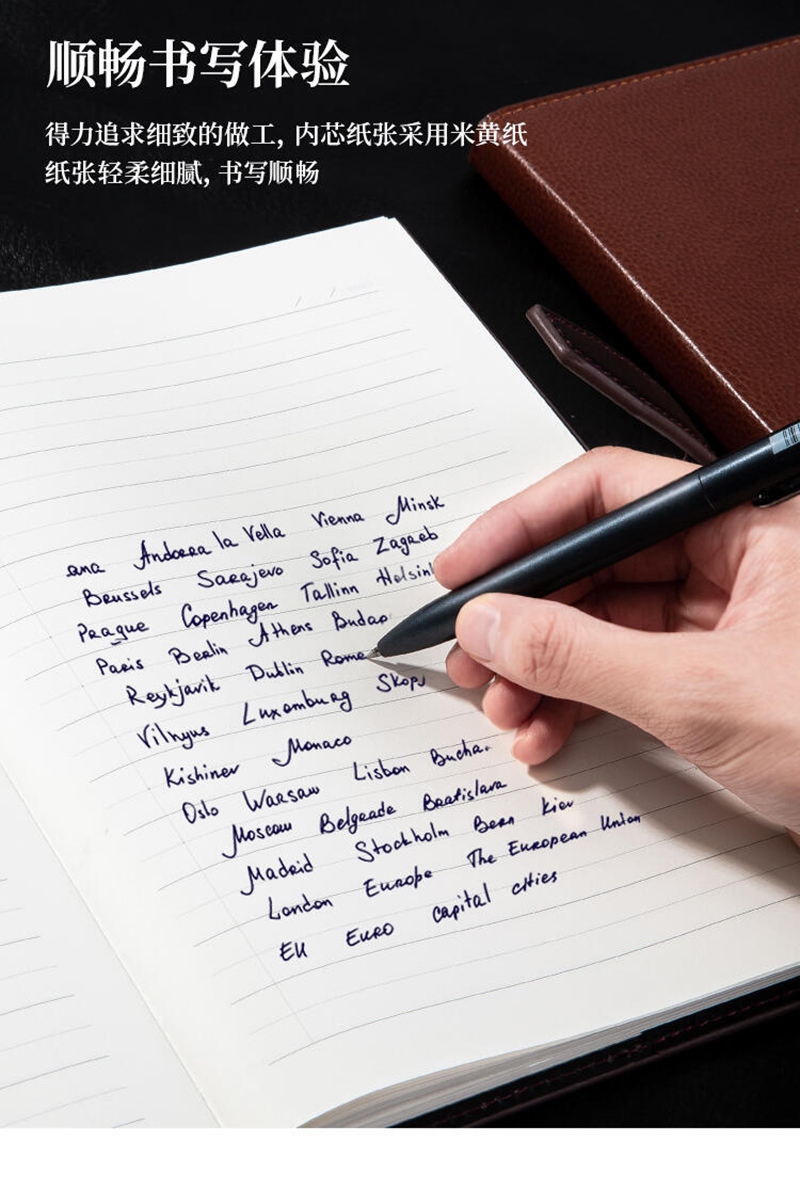 顺畅书写体验
得力追求细致的做工, 内芯纸张采用米黄纸
纸张轻柔细腻, 书写顺畅
ana Andorra la Vella Vienna Minsk
Brussels Sarajevo Sofia Zagreb
Prague Copenhagen Tallinn Helsink
Paris Berlin Athens Budap
Reykjavik Dublin Rome
Vilnyus Luxemburg Skopj
Kishinev Monaco
Oslo Warsaw Lisbon Bucha
Moscow Belgrade Bratislava
Madrid Stockholm Bern Kiev
London Europe The European Union
EU EURO capital cities